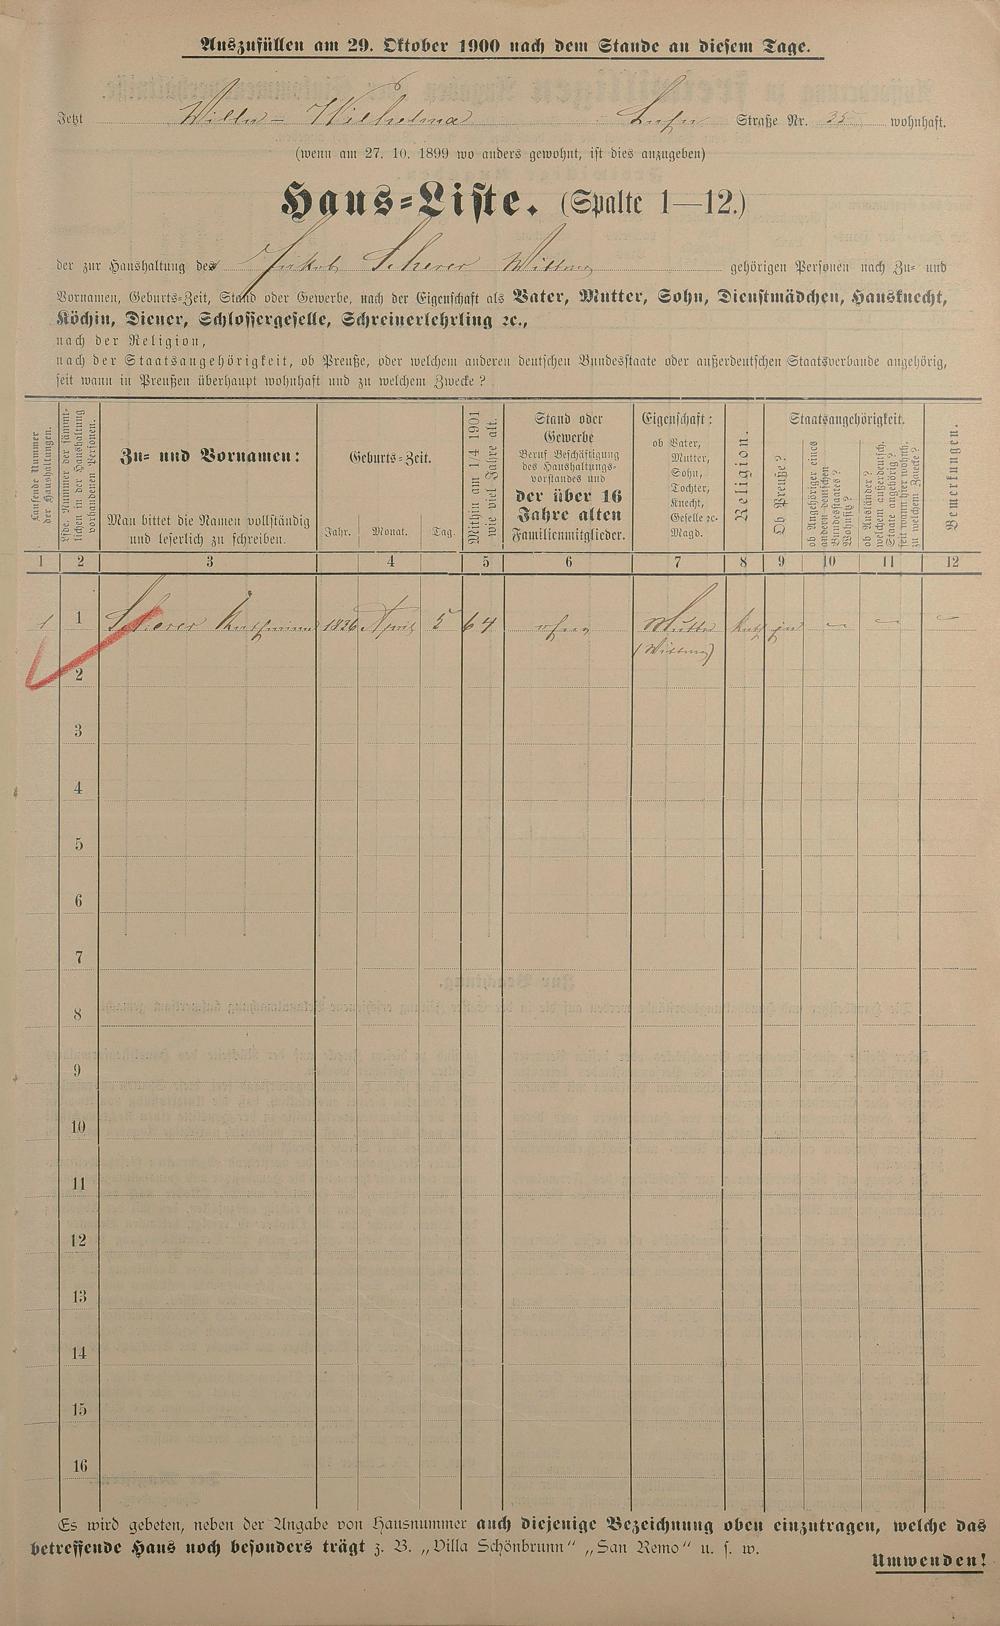 Auszufüllen am 29. Oktober 1900 nach dem Stande an diesem Tage.
Jetzt Villa - Wilhelmina Straße Nr. 35 wohnhaft.
(wenn am 27. 10. 1899 wo anders gewohnt, ist dies anzugeben)
Haus-Liste. (Spalte 1—12.)
der zur Haushaltung der Jakob Scherer Wittwe gehörigen Personen nach Zu- und
Vornamen, Geburts-Zeit, Stand oder Gewerbe, nach der Eigenschaft als Vater, Mutter, Sohn, Dienstmädchen, Hausknecht,
Köchin, Diener, Schlossergeselle, Schreinerlehrling ꝛc.,
nach der Religion,
nach der Staatsangehörigkeit, ob Preuße, oder welchem anderen deutschen Bundesstaate oder außerdeutschen Staatsverbande angehörig,
seit wann in Preußen überhaupt wohnhaft und zu welchem Zwecke?
Laufende Nummer
der Haushaltungen.
Lfde. Nummer der sämmt-
lichen in der Haushaltung
vorhandenen Personen.
Zu- und Vornamen:
Man bittet die Namen vollständig
und leserlich zu schreiben.
Geburts-Zeit.
Jahr. Monat. Tag.
Mithin am 1/4 1901
wie viel Jahre alt.
Stand oder
Gewerbe
Beruf Beschäftigung
des Haushaltungs-
vorstandes und
der über 16
Jahre alten
Familienmitglieder.
Eigenschaft:
ob Vater,
Mutter,
Sohn,
Tochter,
Knecht,
Geselle ꝛc.
Magd.
Religion.
Staatsangehörigkeit.
Ob Preuße?
ob Angehöriger eines
andern deutschen
Bundesstaates?
Wohnsitz?
ob Ausländer?
welchem außerdeutsch.
Staate angehörig?
seit wann hier wohnh.
zu welchem Zwecke?
Bemerkungen.
1 2 3 4 5 6 7 8 9 10 11 12
1 1 Scherer 1836 April 5 64 ohne Mutter kath ja — — —
(Wittwe)
2
3
4
5
6
7
8
9
10
11
12
13
14
15
16
Es wird gebeten, neben der Angabe von Hausnummer auch diejenige Bezeichnung oben einzutragen, welche das
betreffende Haus noch besonders trägt z. B. „Villa Schönbrunn“ „San Remo“ u. s. w.
Umwenden!